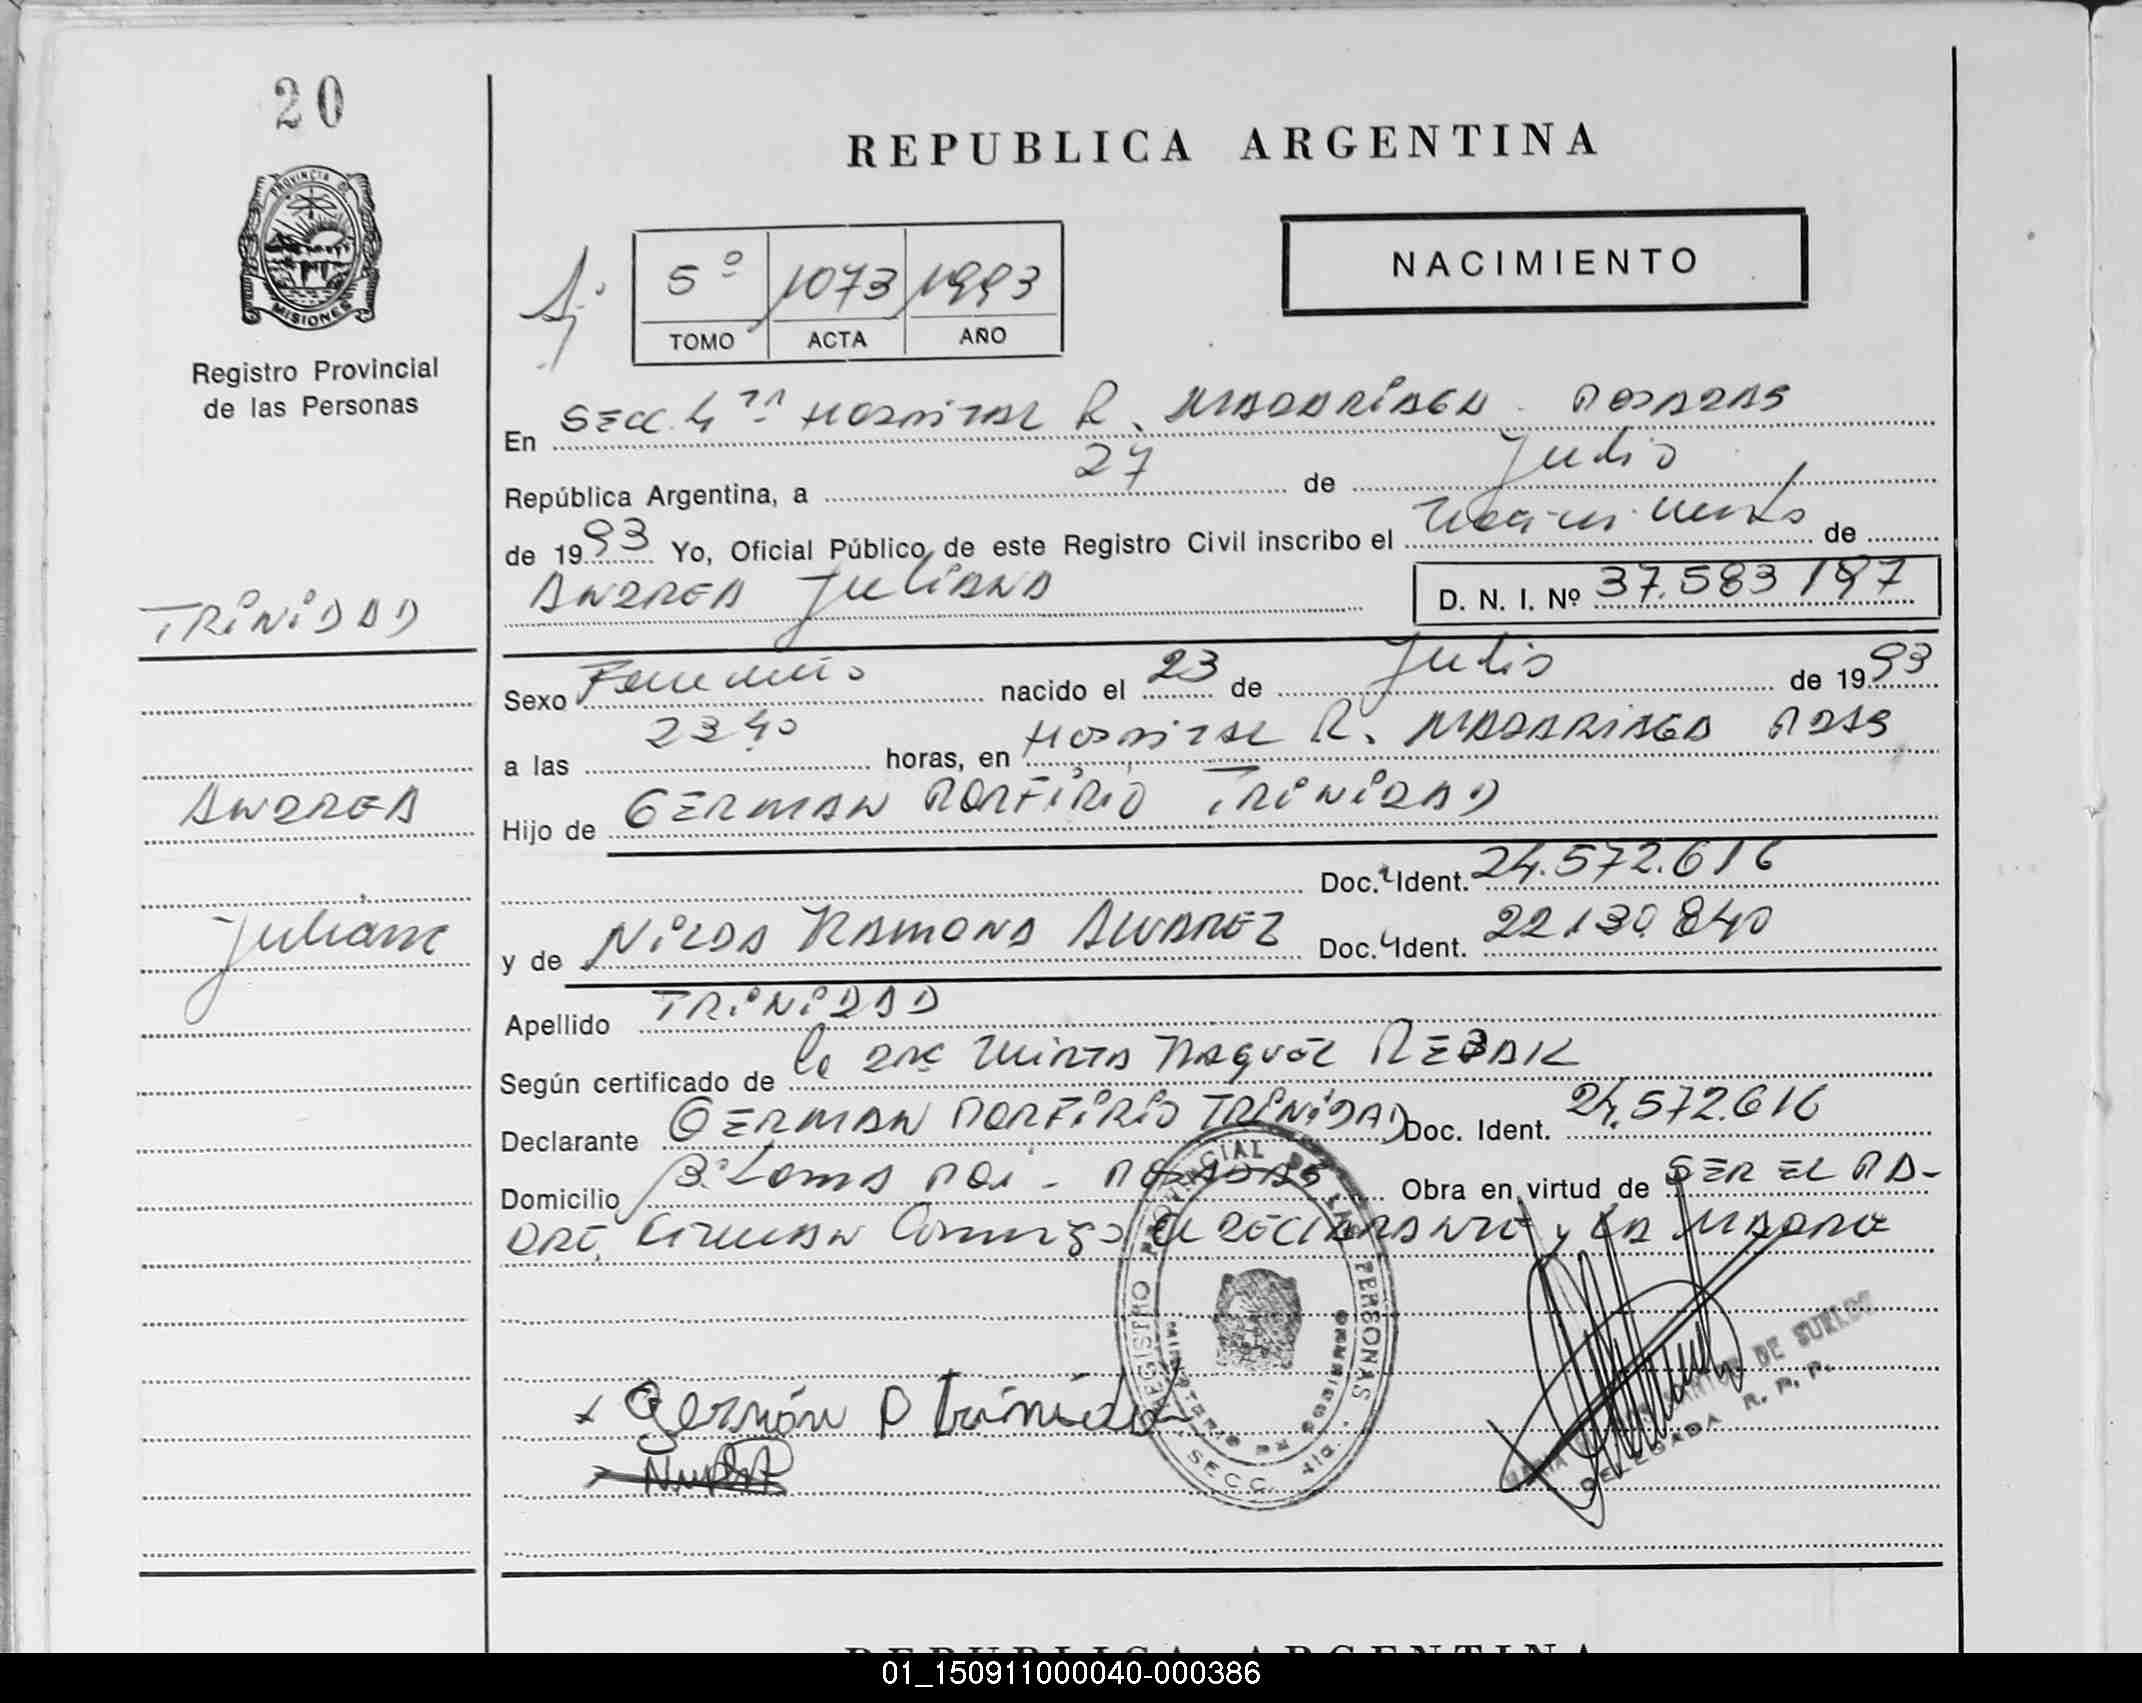 20
REPUBLICA ARGENTINA
PROVINCIA DE
MISIONES
Registro Provincial
de las Personas
5º 1073 1993
TOMO ACTA AÑO
NACIMIENTO
En SECC. 4ta HOSPITAL R. MADARIAGA - POSADAS
República Argentina, a 27 de Julio
de 1993 Yo, Oficial Público de este Registro Civil inscribo el Nacimiento de
ANDREA JULIANA D. N. I. Nº 37.583 197
TRINIDAD
Sexo Femenino nacido el 23 de Julio de 1993
a las 23 40 horas, en HOSPITAL R. MADARIAGA PDAS
ANDREA
Hijo de GERMAN PORFIRIO TRINIDAD
Doc. Ident. 24.572.616
Juliana
y de NILDA RAMONA ALVAREZ Doc. Ident. 22.130.840
Apellido TRINIDAD
Según certificado de la DRA MIRTA RAQUEL
Declarante GERMAN PORFIRIO TRINIDAD Doc. Ident. 24.572.616
Domicilio Bº Loma POI - POSADAS Obra en virtud de SER EL PA-
DRE. FIRMAN Conmigo el DECLARANTE y LA MADRE
Germán P trinidad
REGISTRO PROVINCIAL DE LAS PERSONAS
MINISTERIO DE GOBIERNO
SECC. 4ta
MARIA SANTOS DE SUELDO
DELEGADA R. P. P.
REPUBLICA ARGENTINA
01_150911000040-000386